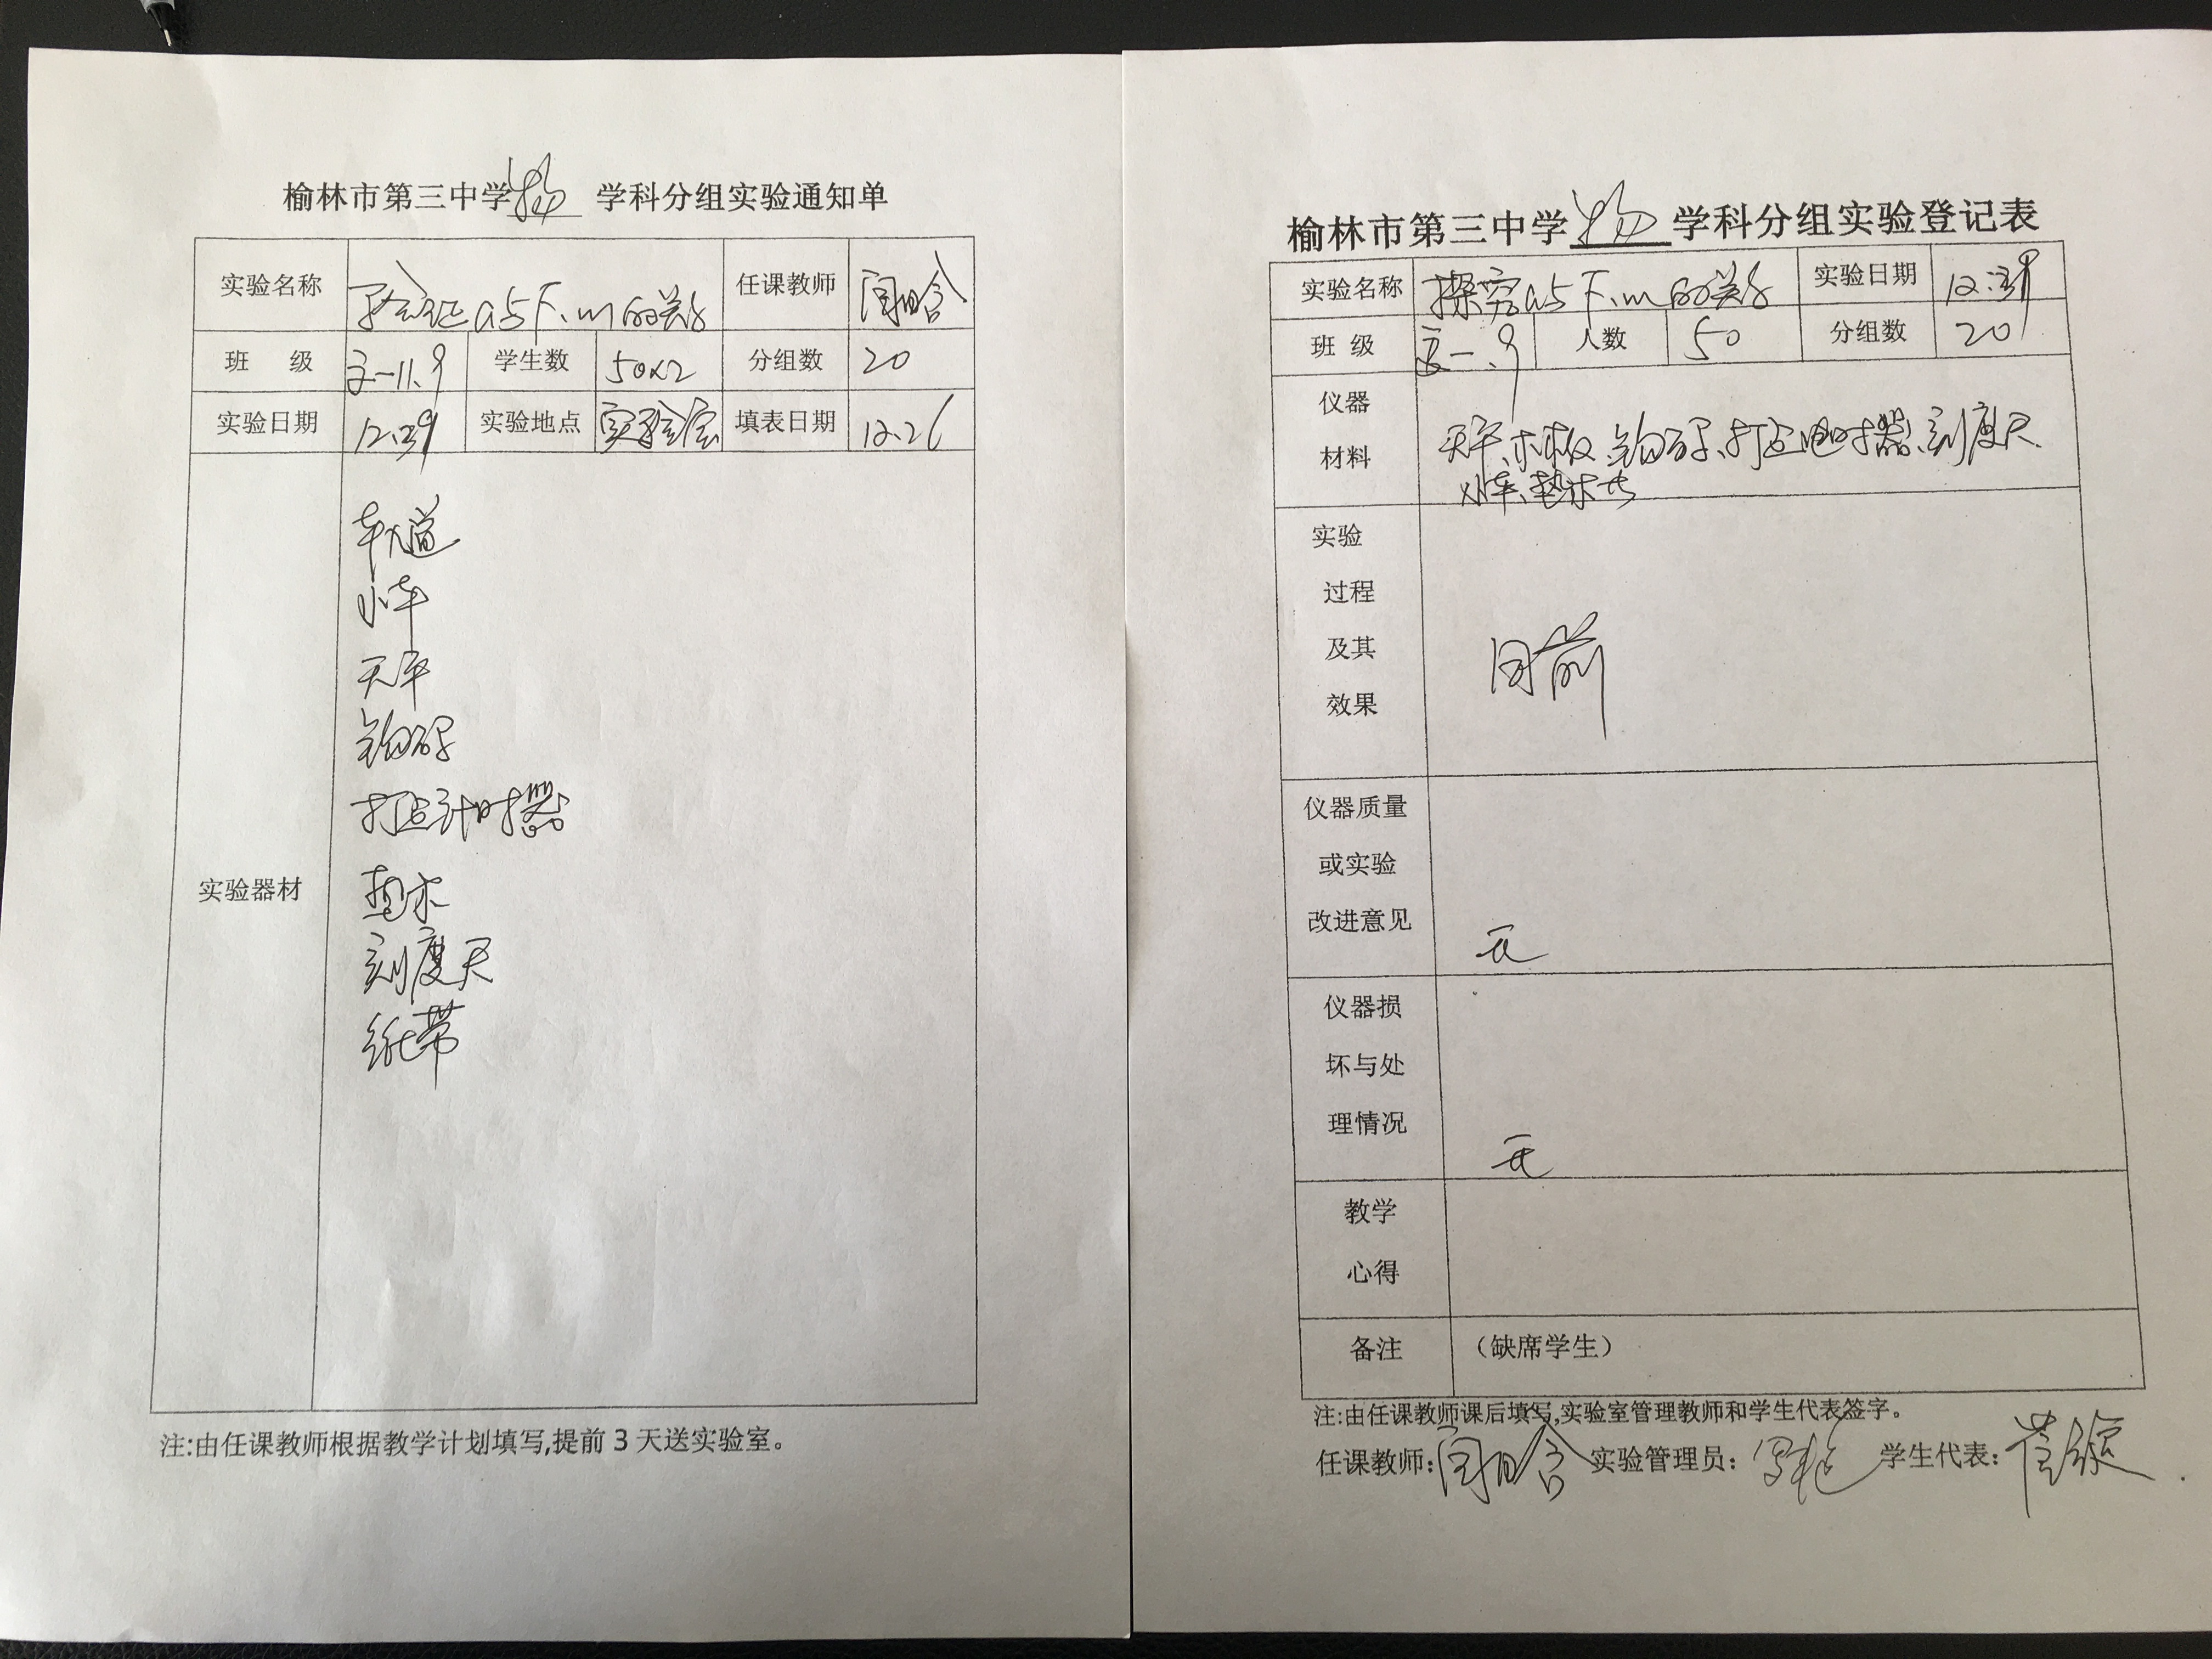 榆林市第三中学 物 学科分组实验通知单
实验名称 验证a与F、m的关系 任课教师
班 级 高一11、9 学生数 50×2 分组数 20
实验日期 实验地点 实验室 填表日期 12.26
轨道
小车
天平
钩码
打点计时器
垫木
实验器材
刻度尺
纸带
注:由任课教师根据教学计划填写,提前3天送实验室。
榆林市第三中学 物 学科分组实验登记表
实验名称 探究a与F、m的关系 实验日期
班 级 高一、9 人数 50 分组数 20
仪器
材料
天平、木板、钩码、打点计时器、刻度尺
小车、垫木
实验
过程
及其
效果
同前
仪器质量
或实验
改进意见
无
仪器损
坏与处
理情况
无
教学
心得
备注 (缺席学生)
注:由任课教师课后填写,实验室管理教师和学生代表签字。
任课教师: 实验管理员: 学生代表: